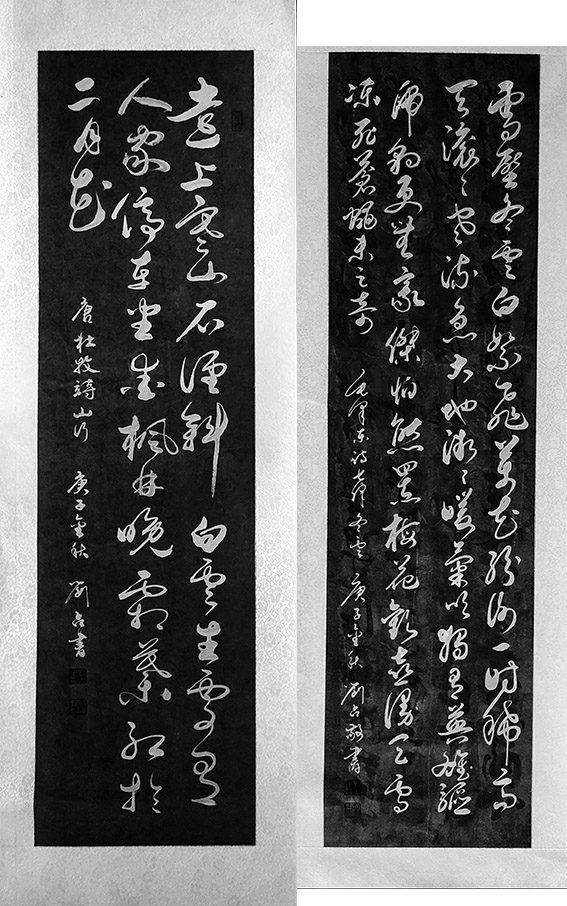 遠上寒山石徑斜白雲生處有
人家停車坐愛楓林晚霜葉紅於
二月花
唐杜牧詩山行 庚子金秋 劉占書
雪壓冬雲白絮飛萬花紛謝一時稀高
天滾〻寒流急大地微〻暖氣吹獨有英雄驅
虎豹更無豪傑怕熊羆梅花歡喜漫天雪
凍死蒼蠅未足奇
毛澤東詩七律冬雲 庚子金秋 劉占書